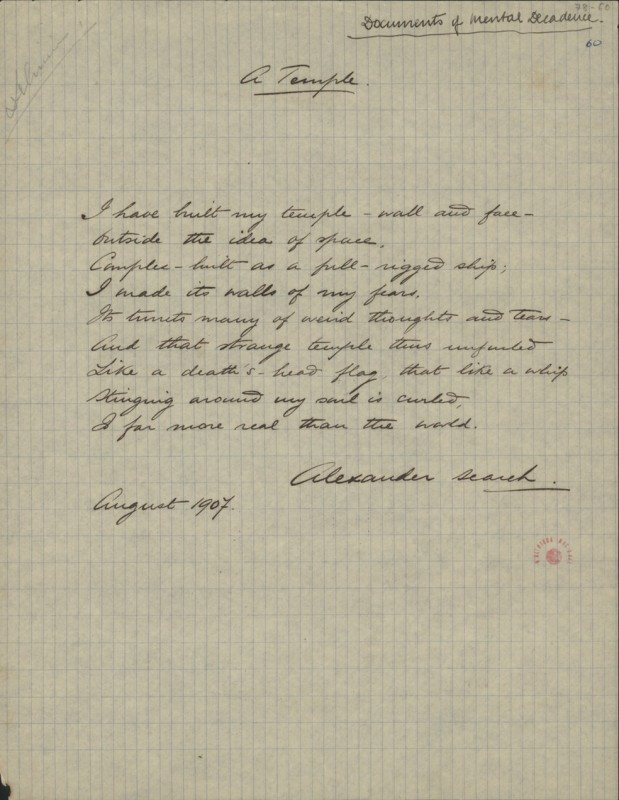 78-60
Documents of Mental Decadence.
60
A Temple.
I have built my temple - wall and face -
Outside the idea of space,
Complex-built as a full-rigged ship;
I made its walls of my fears,
Its turrets many of weird thoughts and tears -
And that strange temple thus unfurled
Like a death's-head flag, that like a whip
Stinging around my soul is curled,
Is far more real than the world.
Alexander Search.
August 1907.